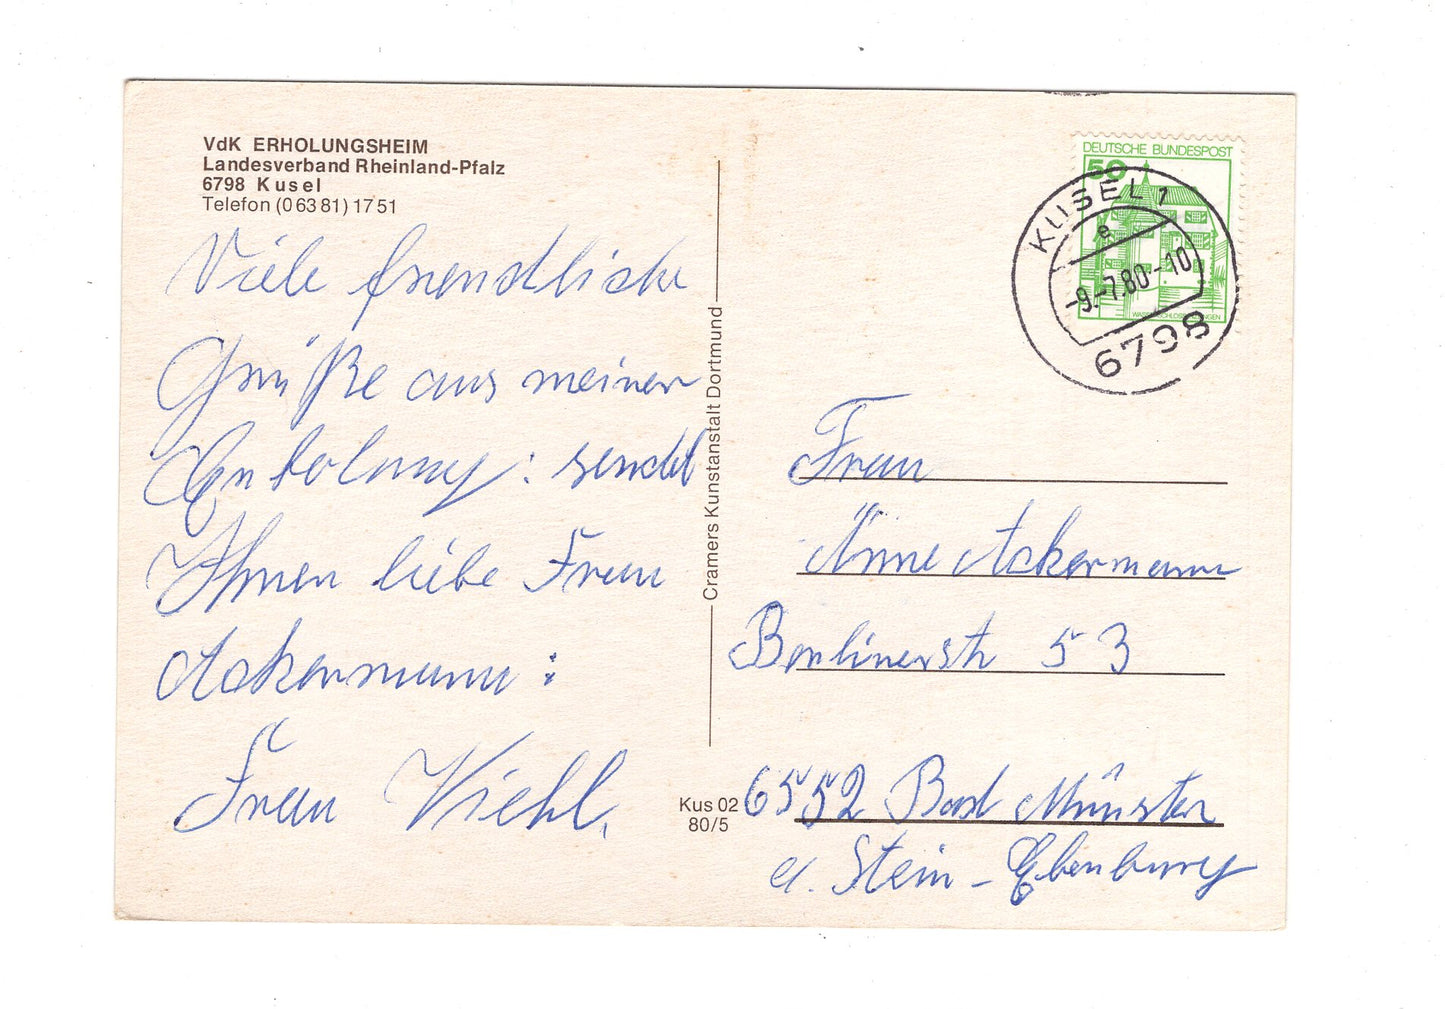 VdK ERHOLUNGSHEIM
Landesverband Rheinland-Pfalz
6798 Kusel
Telefon (0 63 81) 17 51
Viele freundliche
Grüße aus meiner
Erholung: sendet
Ihnen liebe Frau
Ackermann:
Frau Viehl,
Cramers Kunstanstalt Dortmund
Kus 02
80/5
DEUTSCHE BUNDESPOST
50
WASSERSCHLOSS INZLINGEN
KUSEL 1
e
-9.-7.80-10
6798
Frau
Änne Ackermann
Berlinerstr 53
6552 Bad Münster
a. Stein - Ebernburg